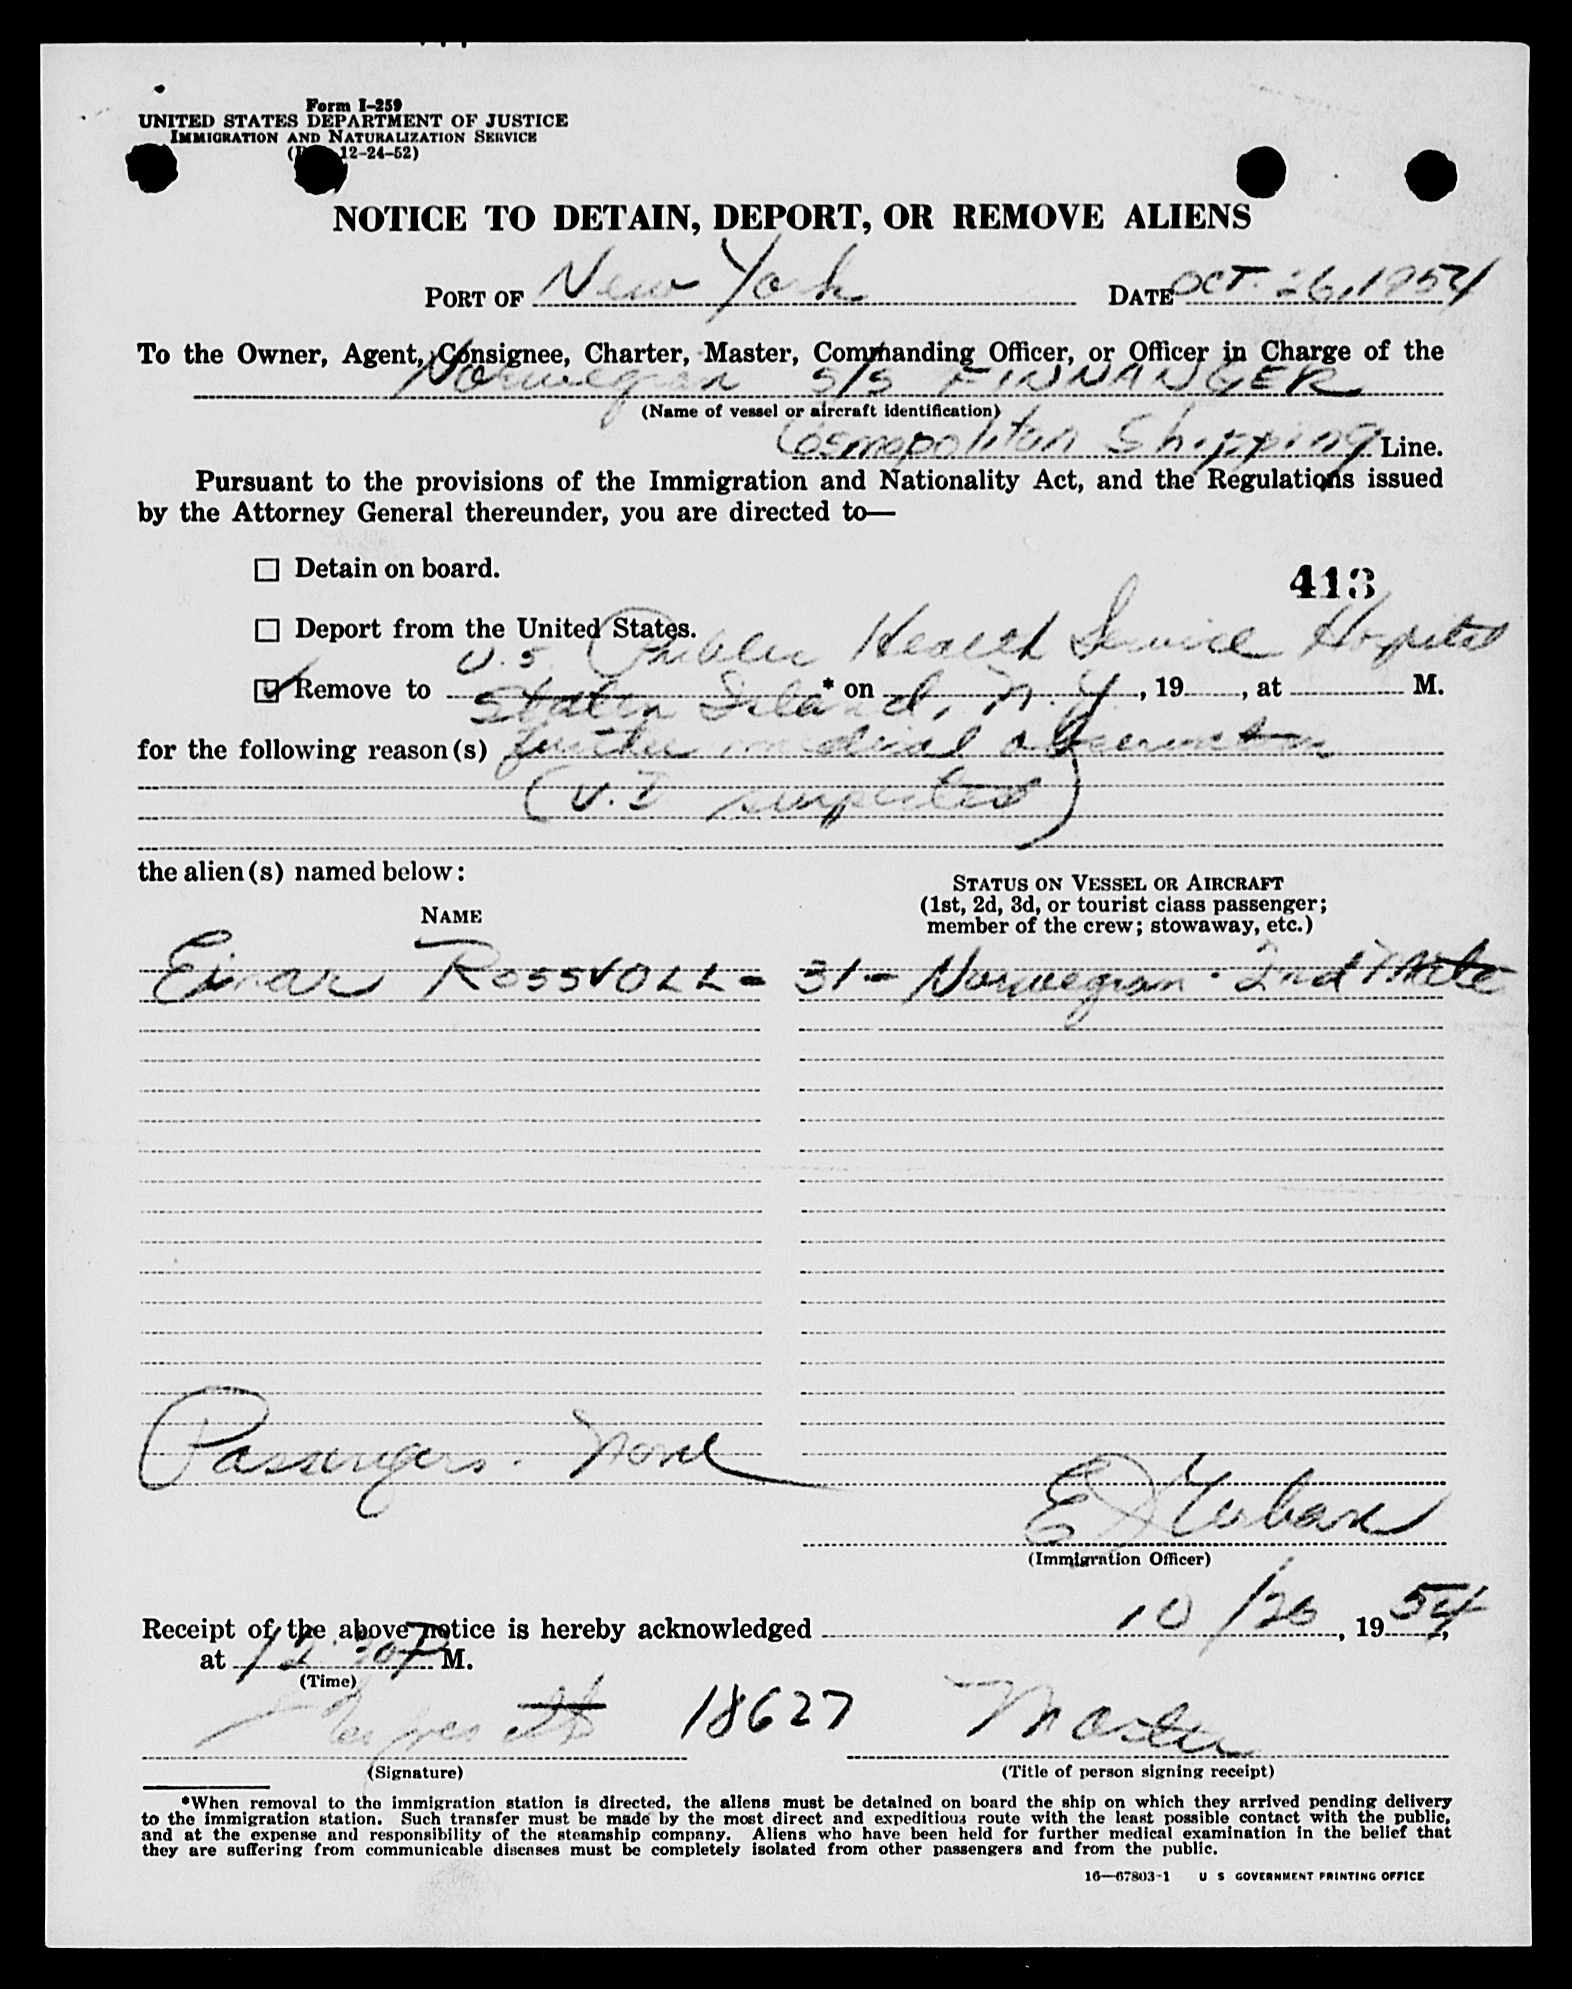 Form I-259
UNITED STATES DEPARTMENT OF JUSTICE
IMMIGRATION AND NATURALIZATION SERVICE
12-24-52)
NOTICE TO DETAIN, DEPORT, OR REMOVE ALIENS
PORT OF New York DATE OCT. 26, 1954
To the Owner, Agent, Consignee, Charter, Master, Commanding Officer, or Officer in Charge of the
Norwegian S/S FINNANGER
(Name of vessel or aircraft identification)
Cosmopolitan Shipping Line.
Pursuant to the provisions of the Immigration and Nationality Act, and the Regulations issued
by the Attorney General thereunder, you are directed to—
☐ Detain on board.
413
☐ Deport from the United States.
U.S. Public Health Service Hospital
☑ Remove to Staten Island, N.Y. * on , 19 , at M.
for the following reason(s) further medical observation
(V.D suspected)
the alien(s) named below:
STATUS ON VESSEL OR AIRCRAFT
(1st, 2d, 3d, or tourist class passenger;
member of the crew; stowaway, etc.)
NAME
Einar ROSSVOLL - 31 - Norwegian - 2nd Mate
Passengers - None
(Immigration Officer)
Receipt of the above notice is hereby acknowledged 10/26, 1954,
at 12:30 P M.
(Time)
18627 Master
(Signature) (Title of person signing receipt)
*When removal to the immigration station is directed, the aliens must be detained on board the ship on which they arrived pending delivery
to the immigration station. Such transfer must be made by the most direct and expeditious route with the least possible contact with the public,
and at the expense and responsibility of the steamship company. Aliens who have been held for further medical examination in the belief that
they are suffering from communicable diseases must be completely isolated from other passengers and from the public.
16—67803-1 U S GOVERNMENT PRINTING OFFICE